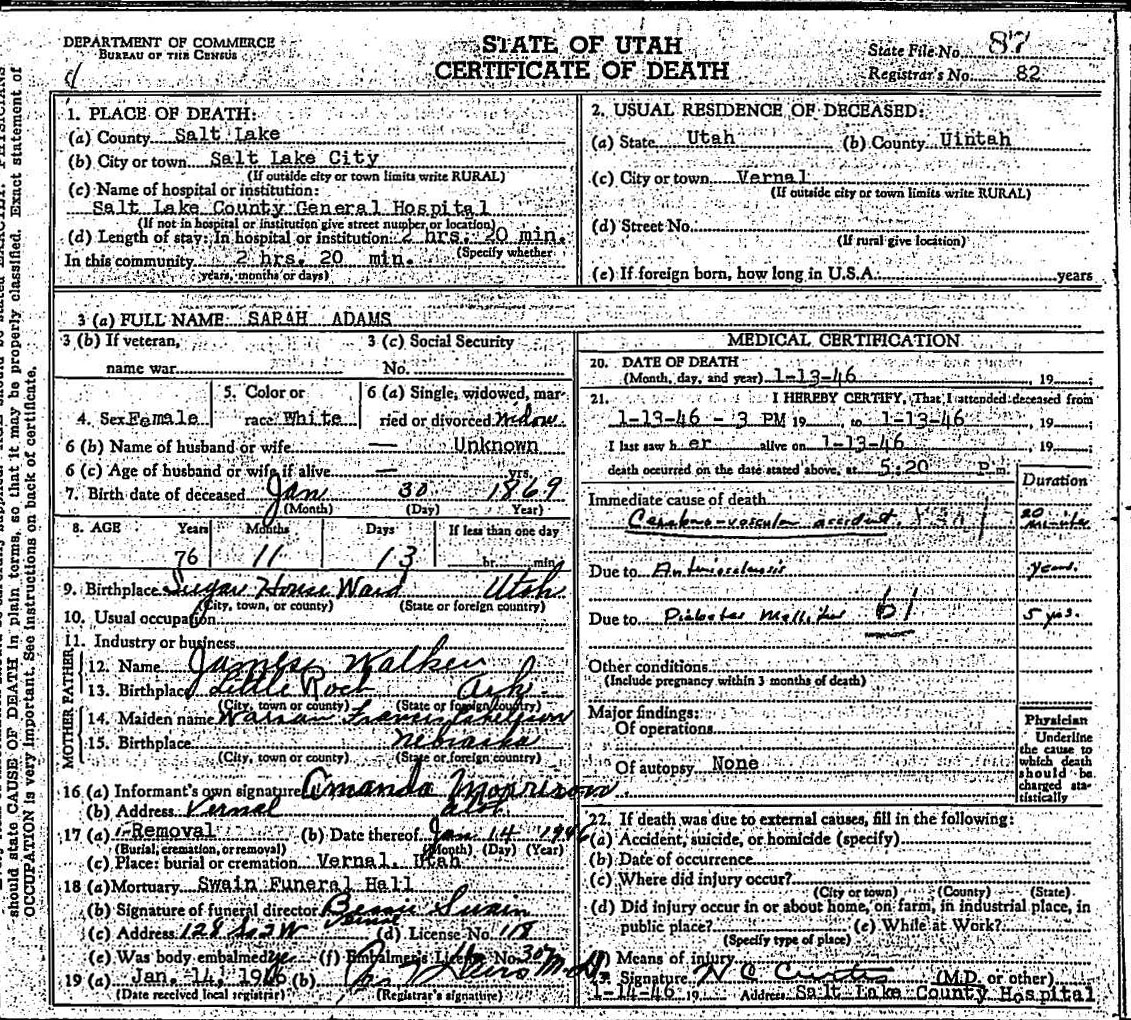 DEPARTMENT OF COMMERCE
BUREAU OF THE CENSUS
STATE OF UTAH
CERTIFICATE OF DEATH
State File No. 87
Registrar's No. 82
should state CAUSE OF DEATH in plain terms, so that it may be properly classified. Exact statement of
OCCUPATION is very important. See instructions on back of certificate.
1. PLACE OF DEATH:
(a) County Salt Lake
(b) City or town Salt Lake City
(If outside city or town limits write RURAL)
(c) Name of hospital or institution:
Salt Lake County General Hospital
(If not in hospital or institution give street number or location)
(d) Length of stay: In hospital or institution: 2 hrs. 20 min.
(Specify whether
In this community 2 hrs. 20 min.
years, months or days)
2. USUAL RESIDENCE OF DECEASED:
(a) State Utah (b) County Uintah
(c) City or town Vernal
(If outside city or town limits write RURAL)
(d) Street No.
(If rural give location)
(e) If foreign born, how long in U.S.A. years
3 (a) FULL NAME SARAH ADAMS
3 (b) If veteran,
name war
3 (c) Social Security
No.
4. Sex Female
5. Color or
race White
6 (a) Single, widowed, mar-
ried or divorced Widow
6 (b) Name of husband or wife — Unknown
6 (c) Age of husband or wife if alive — yrs.
7. Birth date of deceased Jan 30 1869
(Month) (Day) Year)
8. AGE Years Months Days If less than one day
76 11 13 hr. min.
9. Birthplace Sugar House Ward Utah
(City, town, or county) (State or foreign country)
10. Usual occupation
11. Industry or business
FATHER
12. Name James Walker
13. Birthplace Little Rock Ark
(City, town or county) (State or foreign country)
MOTHER
14. Maiden name
15. Birthplace Nebraska
(City, town or county) (State or foreign country)
16 (a) Informant's own signature Amanda Morrison
(b) Address Vernal Utah
17 (a) 1-Removal (b) Date thereof Jan 14 1946
(Burial, cremation, or removal) (Month) (Day) (Year)
(c) Place: burial or cremation Vernal, Utah
18 (a) Mortuary Swain Funeral Hall
(b) Signature of funeral director Bessie Swain
Vernal
(c) Address 128 So 2 W (d) License No. 118
(e) Was body embalmed ye (f) Embalmer's License No. 307
19 (a) Jan. 14, 1946 (b)
(Date received local registrar) (Registrar's signature)
MEDICAL CERTIFICATION
20. DATE OF DEATH
(Month, day, and year) 1-13-46, 19
21. I HEREBY CERTIFY, That I attended deceased from
1-13-46 - 3 PM 19, to 1-13-46, 19
I last saw h er alive on 1-13-46, 19
death occurred on the date stated above, at 5:20 P m.
Duration
Immediate cause of death
Cerebro-vascular accident 20 minutes
Due to Arteriosclerosis years
Due to Diabetes Mellitus 61 5 yrs.
Other conditions
(Include pregnancy within 3 months of death)
Major findings:
Of operations
Of autopsy None
Physician
Underline
the cause to
which death
should be
charged sta-
tistically
22. If death was due to external causes, fill in the following:
(a) Accident, suicide, or homicide (specify)
(b) Date of occurrence
(c) Where did injury occur?
(City or town) (County) (State)
(d) Did injury occur in or about home, on farm, in industrial place, in
public place? (e) While at Work?
(Specify type of place)
(f) Means of injury
23. Signature N C Curtis (M.D. or other)
1-14-46 19 Address Salt Lake County Hospital